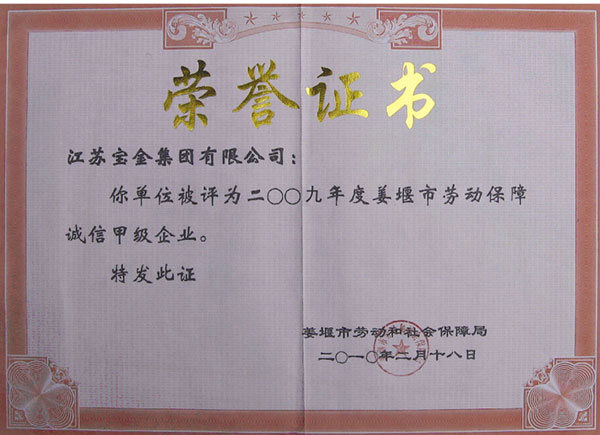 荣誉证书
江苏宝金集团有限公司：
你单位被评为二〇〇九年度姜堰市劳动保障
诚信甲级企业。
特发此证
姜堰市劳动和社会保障局
二〇一〇年二月十八日